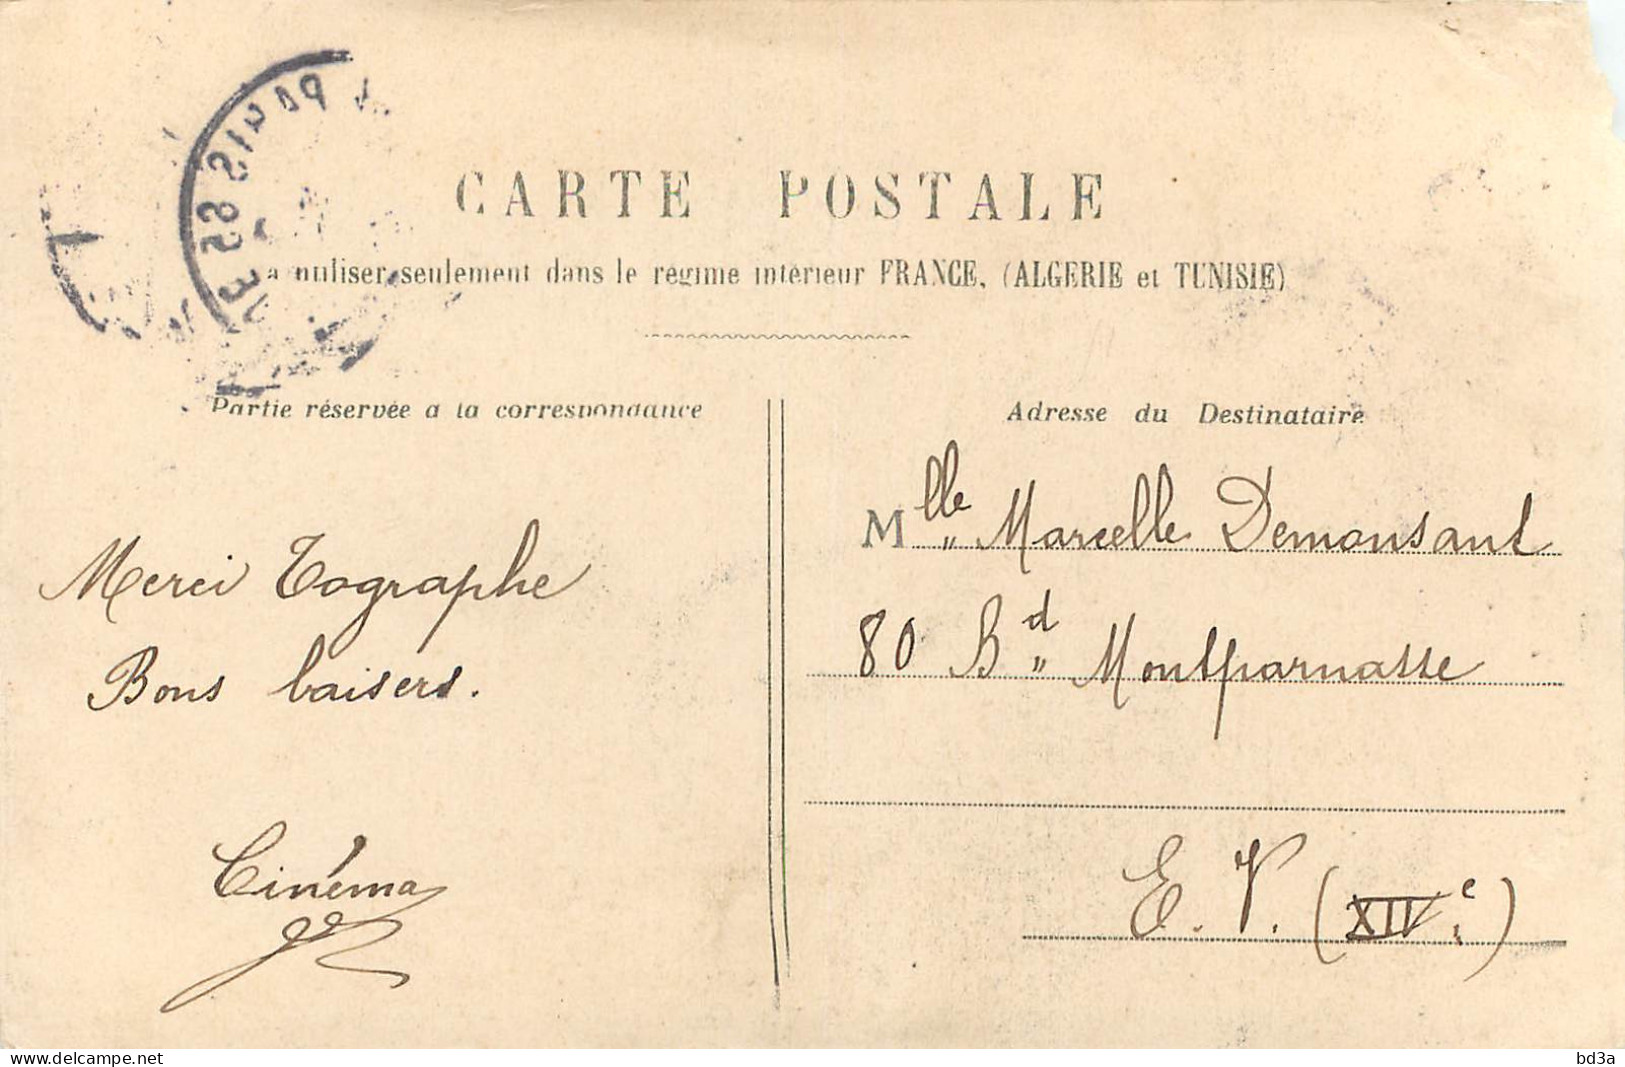 PARIS
CARTE POSTALE
a utiliser seulement dans le régime intérieur FRANCE, (ALGERIE et TUNISIE)
Partie réservée a la correspondance
Adresse du Destinataire
Merci Tographe
Bons baisers.
Cinéma
Mlle Marcelle Demonsant
80 Bd Montparnasse
E. V. (XIVe)
delcampe.net
bd3a